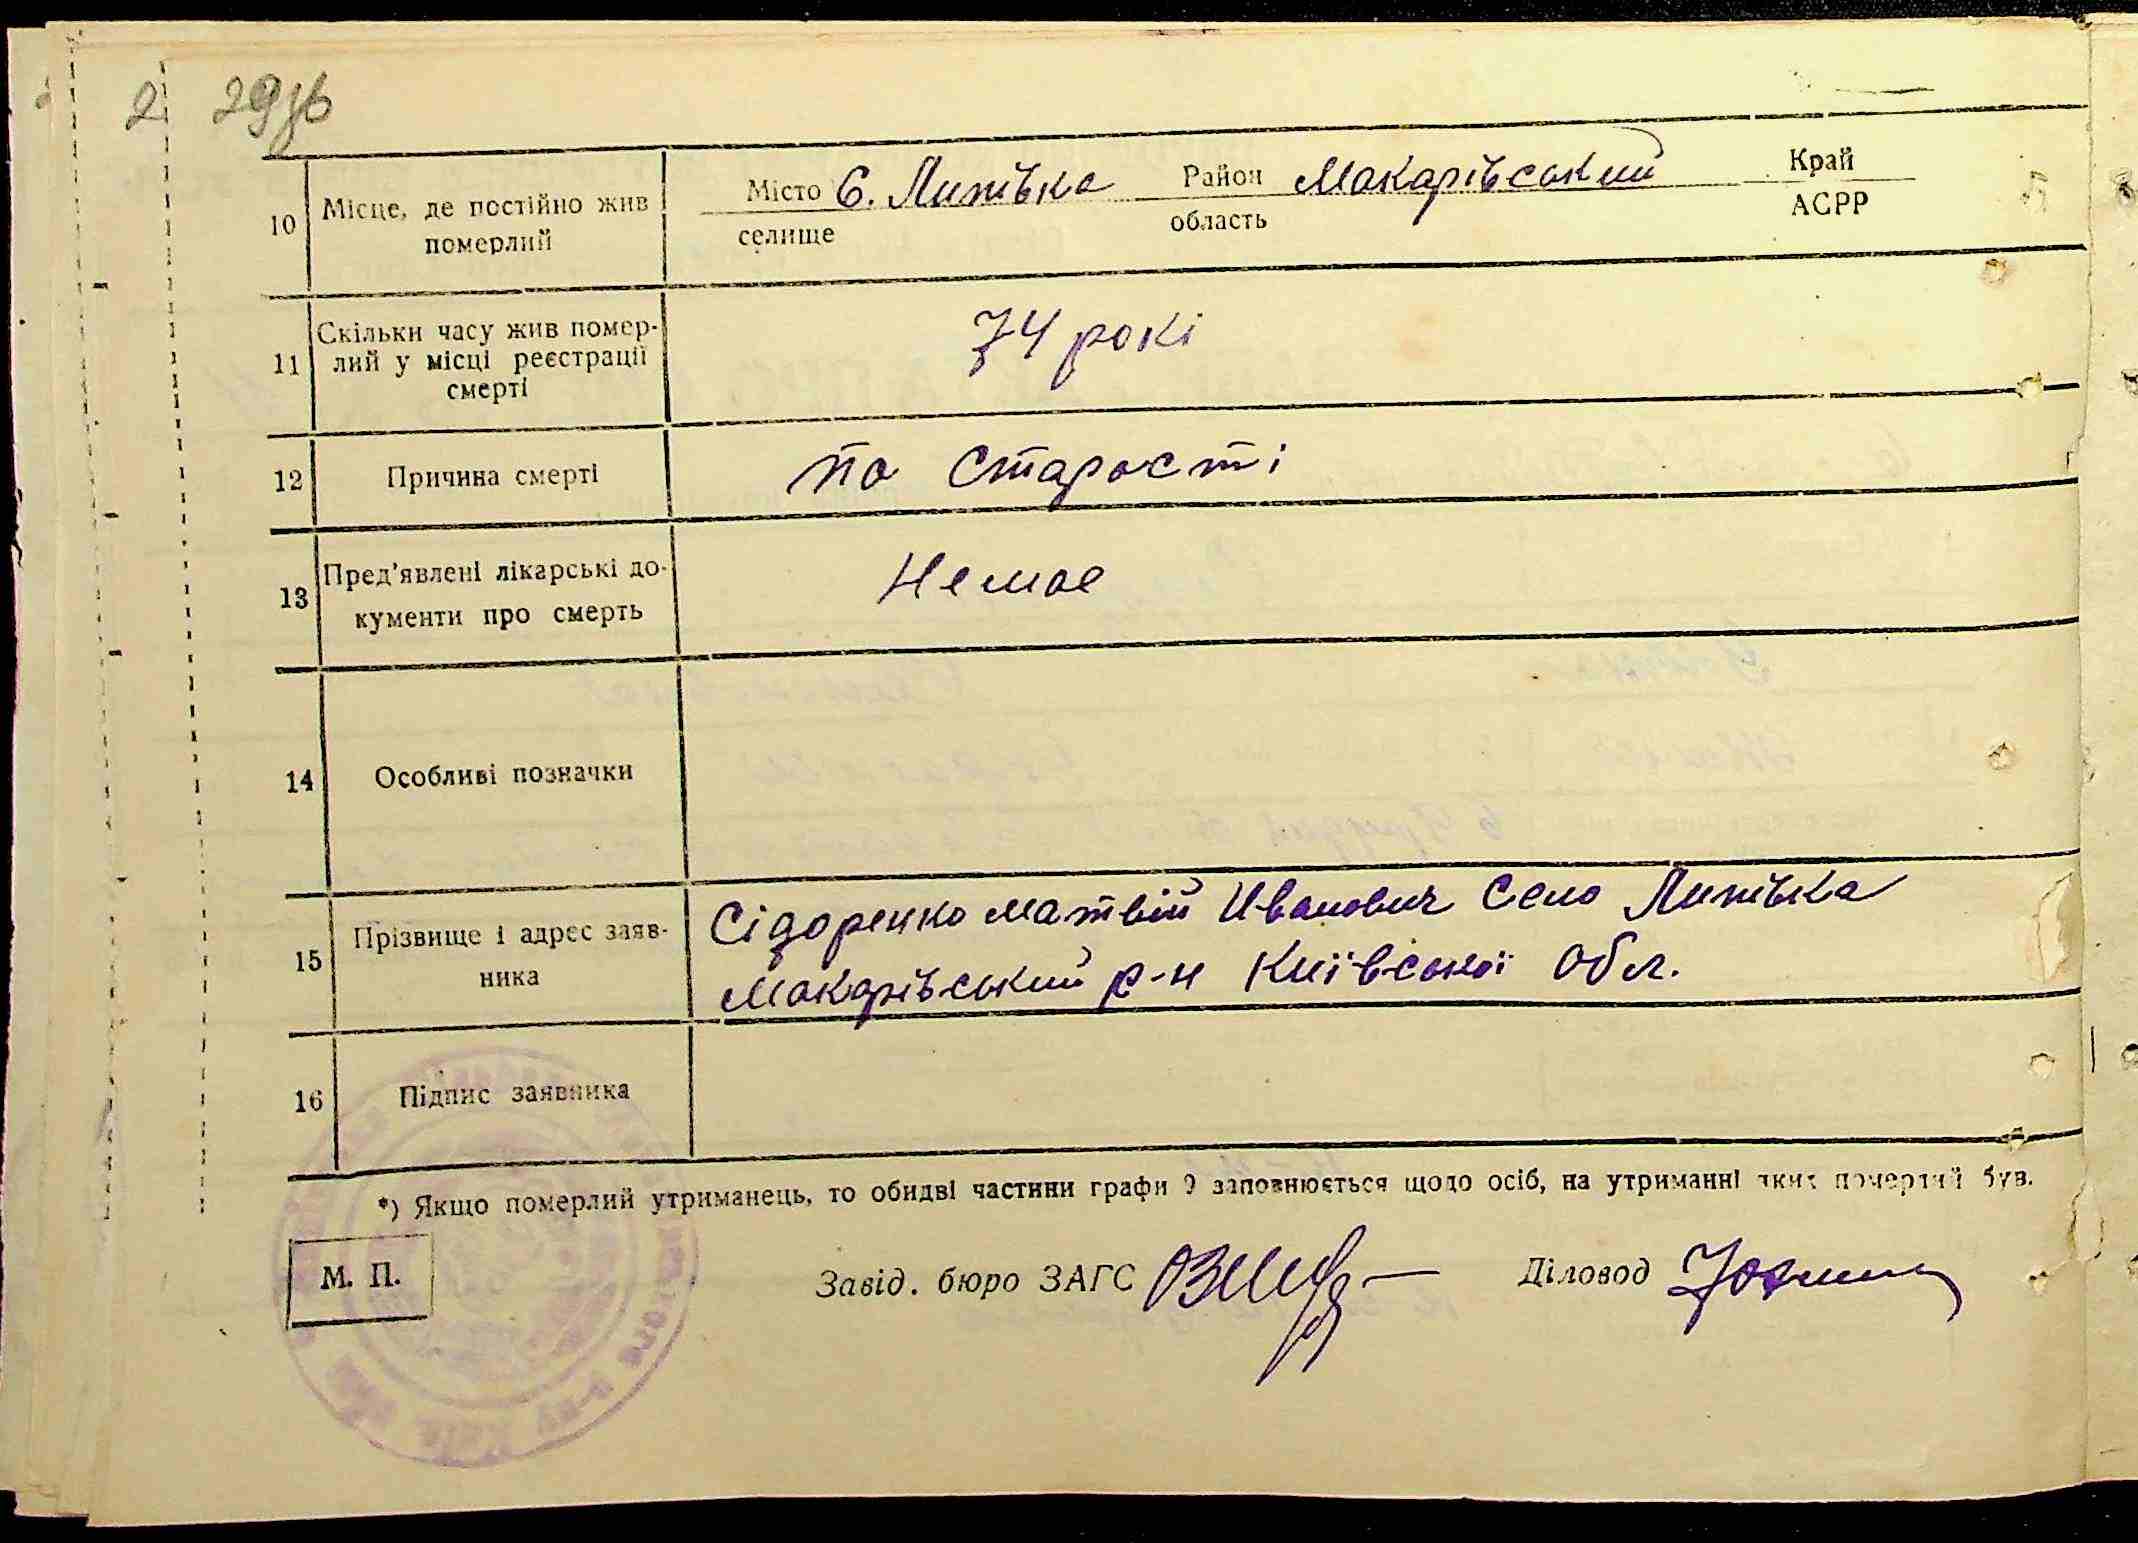 2 29зв
10 Місце, де постійно жив померлий
Місто С. Липівка Район Макарівський Край
селище область АСРР
11 Скільки часу жив помер-
лий у місці реєстрації
смерті
74 рокі
12 Причина смерті по старості
13 Пред'явлені лікарські до-
кументи про смерть
Немає
14 Особливі позначки
15 Прізвище і адрес заяв-
ника
Сідоренко Матвій Иванович Село Липівка
Макарівський р-н Київської обл.
16 Підпис заявника
*) Якщо померлий утриманець, то обидві частини графи 9 заповнюється щодо осіб, на утриманні яких померлий був.
М. П. Завід. бюро ЗАГС Діловод